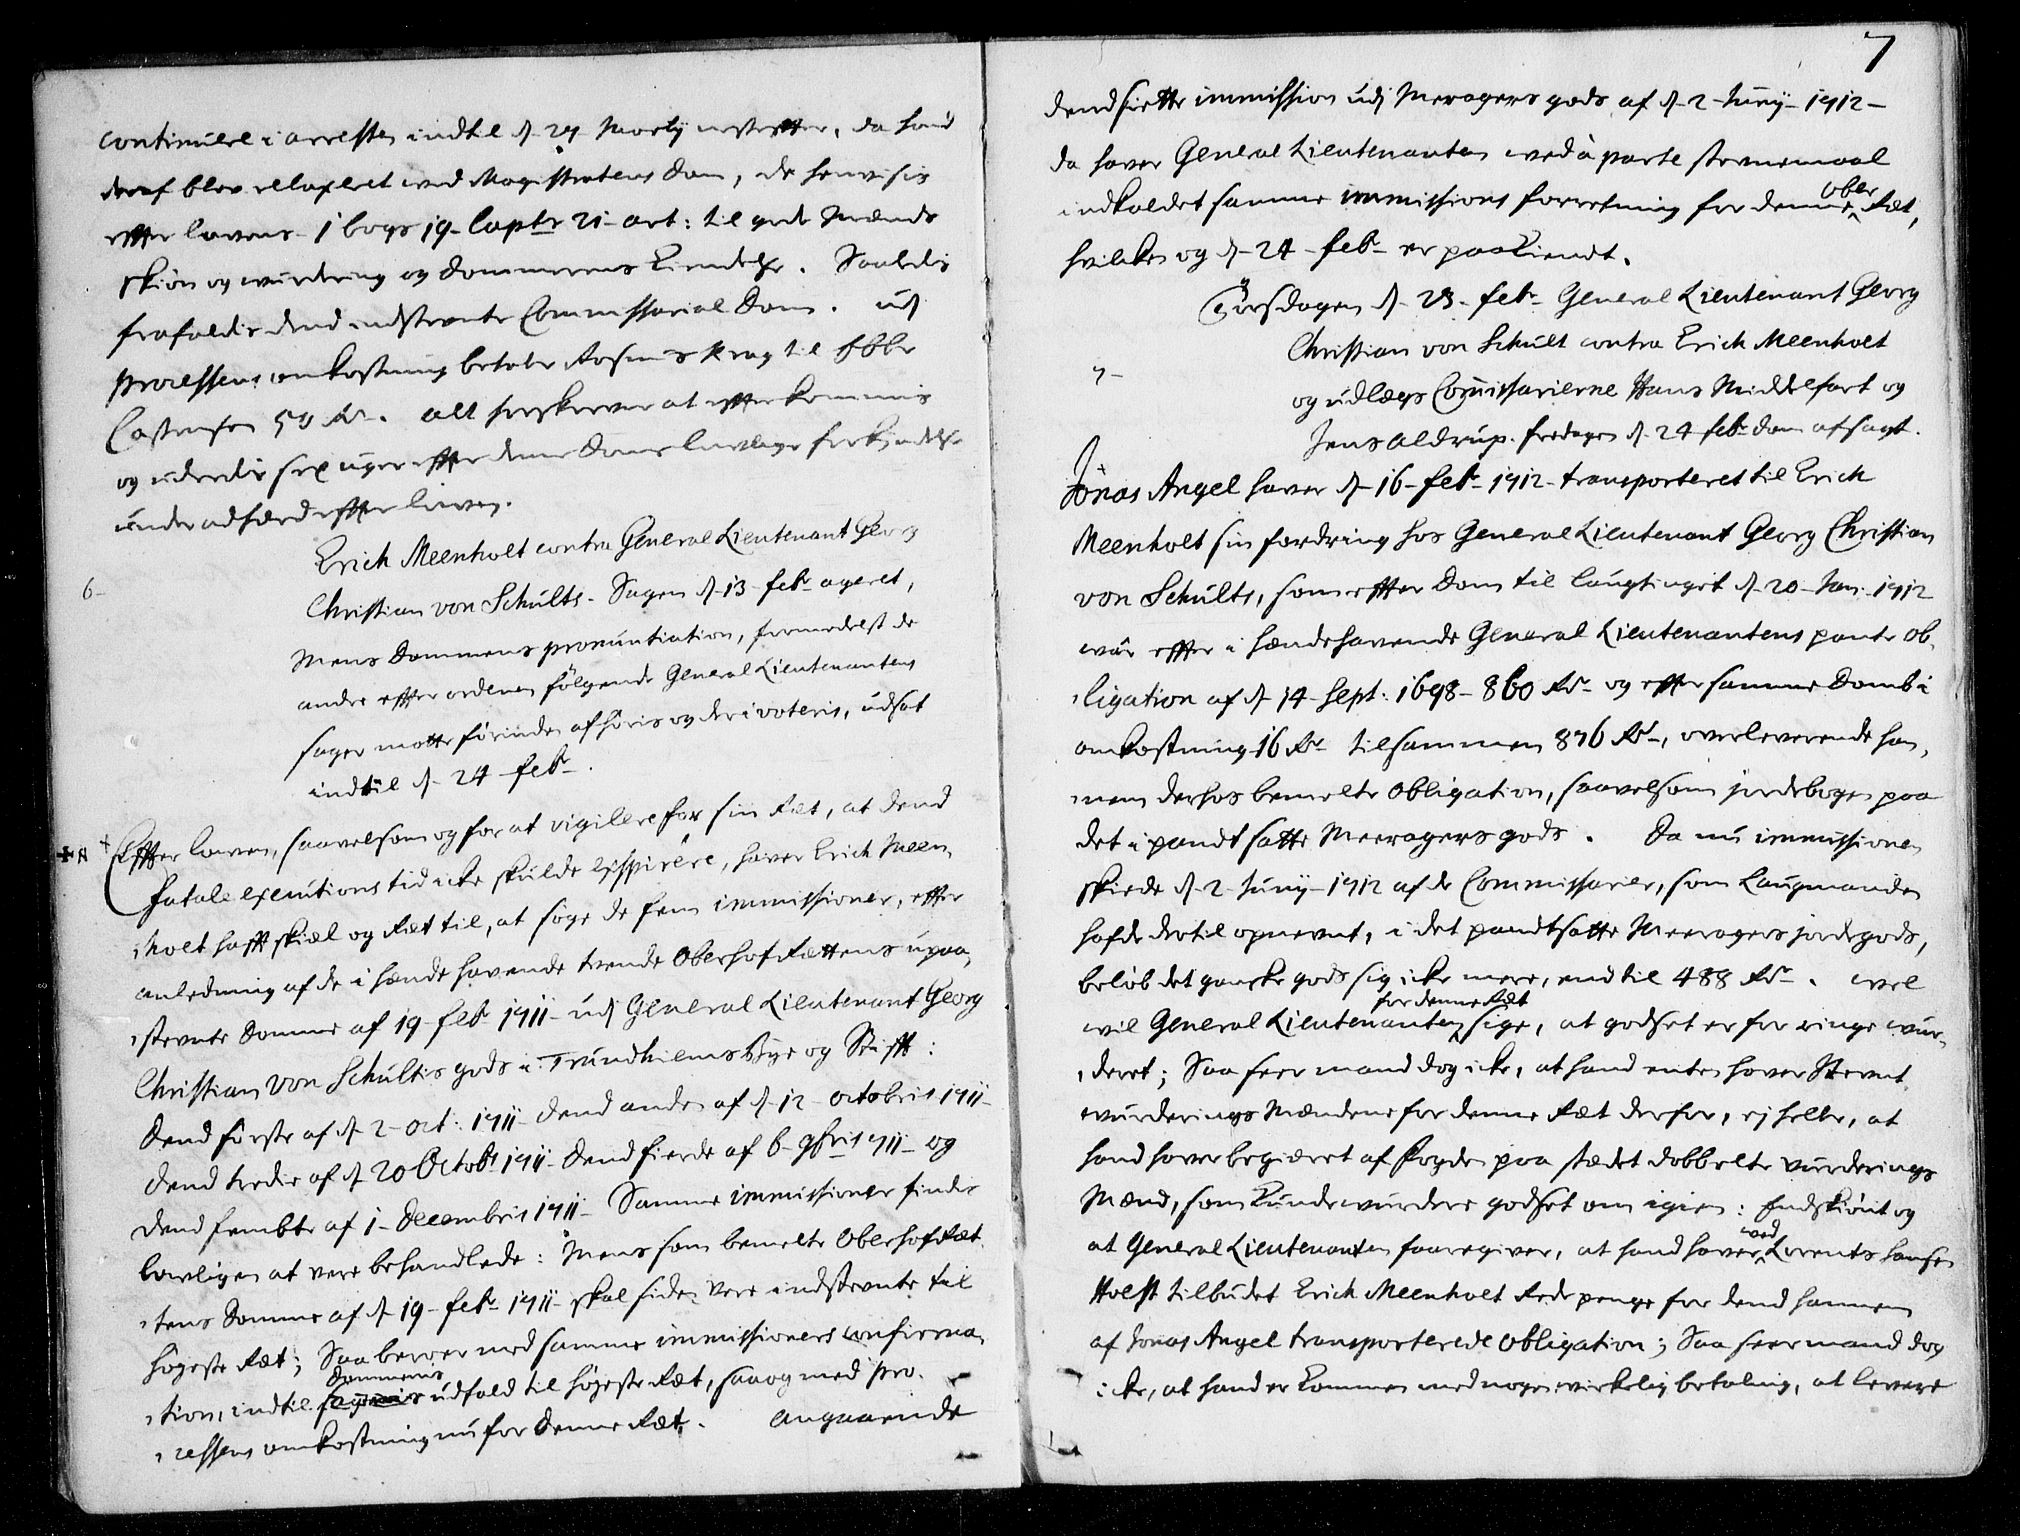 continuere i arresten indtil d. 29 Martij nestefter, da hand
deraf blev relaxeret ved Magistratens Dom, de henvisis
efter lovens 1 bogs 19 Capts 21 art: til gode Mænds
skiøn og wurdering og Dommerens Kiendelse. Saaledis
frafaldis dend indstevnte Commissorial Dom. udj
Processens omkostning betaler Rasmus Krag til Ebbe
Carstensen 50 Rdr. alt forskrevne at efterkommis
og udredis sex uger efter denne Doms lovlige forkyndelse
under adfærd efter loven.
6-
Erich Meenholt contra General Lieutenant Georg
Christian von Schults. Sagen d. 13 febr. ageret,
Mens Dommens pronuntiation, formedelst de
andre efter ordenen følgende General Lieutenantens
sager motte først inden afhøris og derj voteris, udsat
indtil d. 24 febr.
Efter loven, saavelsom og for at vigilere for sin Ræt, at dend
fatale executions tid icke skulde exspirere, haver Erich Meen-
holt hafft skiæl og Ræt til, at søge de fem immissioner, efter
anledning af de i hænde havende trende Oberhof Rættens upaa-
stevnte Domme af 19 febr. 1711 udj General Lieutenant Georg
Christian von Schultis gods i Trundhiems bye og Stifft:
Dend første af d. 2 oct: 1711 dend anden af d. 12 octobris 1711
Dend tredie af d. 20 Octobr 1711 dend fierde af 6 9bris 1711 og
Dend fembte af 1 Decembris 1711 Samme immissioner findis
lovligen at vere behandlede: Mens som bemelte Oberhof Ræt-
tens Domme af d. 19 febr 1711 skal siden vere indstevnte til
høyeste Ræt; Saa beroer med samme immissioners confirma-
tion, indtil Dommenis udfald til høyeste Ræt, saa og med pro-
cessens omkostning nu for denne Ræt. Angaaende
7
dend siette immission udj Meragers gods af d. 2 Junij 1712
da haver General Lieutenanten ved à parte stevnemaal
indkaldet samme immissions forretning for denne Ober Ræt,
hvilken og d. 24 febr er paakiendt.
7-
Torsdagen d. 23. febr. General Lieutenant Georg
Christian von Schult contra Erich Meenholt
og udlægs Commissarierne Hans Middelfart og
Jens Aldrup. fredagen d. 24 febr. dom afsagt.
Jonas Angel haver d. 16 febr 1712 transporteret til Erich
Meenholt sin fordring hos General Lieutenant Georg Christian
von Schults, som efter Dom til laugtinget d. 20 Jan: 1712
waar efter i hændehavende General Lieutenantens pante ob-
ligation af d. 14 Sept: 1698 860 Rdr og efter samme Domb i
omkostning 16 Rdr tilsammen 876 Rdr, overleverende han-
nem derhos bemelte Obligation, saavelsom jordebogen paa
det i pandt satte Meeragers gods. Da nu immissionen
skiede d. 2 Junij 1712 af de Commissarier, som Laugmanden
hafde dertil opnevnt, i det pandtsatte Meeragers jordegods,
beløb det gandske gods sig icke mere, end til 488 Rdr. Wel
wil General Lieutenanten for denne Ræt sige, at godset er for ringe wur-
deret; Saa seer mand dog icke, at hand enten haver Stevnt
wurderings Mændene for denne Ræt derfor, ej heller, at
hand haver begiæret af Fogden paa stædet dobbelte wurderings
Mænd, som Kunde wurdere godset om igien: Endskiønt og
at General Lieutenanten foregiver, at hand haver ved Lorents Hansen
Holst tilbudet Erich Meenholt Rede penge for dend hannem
af Jonas Angel transporterede Obligation; Saa seer mand dog
icke, at hand er kommen med nogen wirkelig betaling, at levere